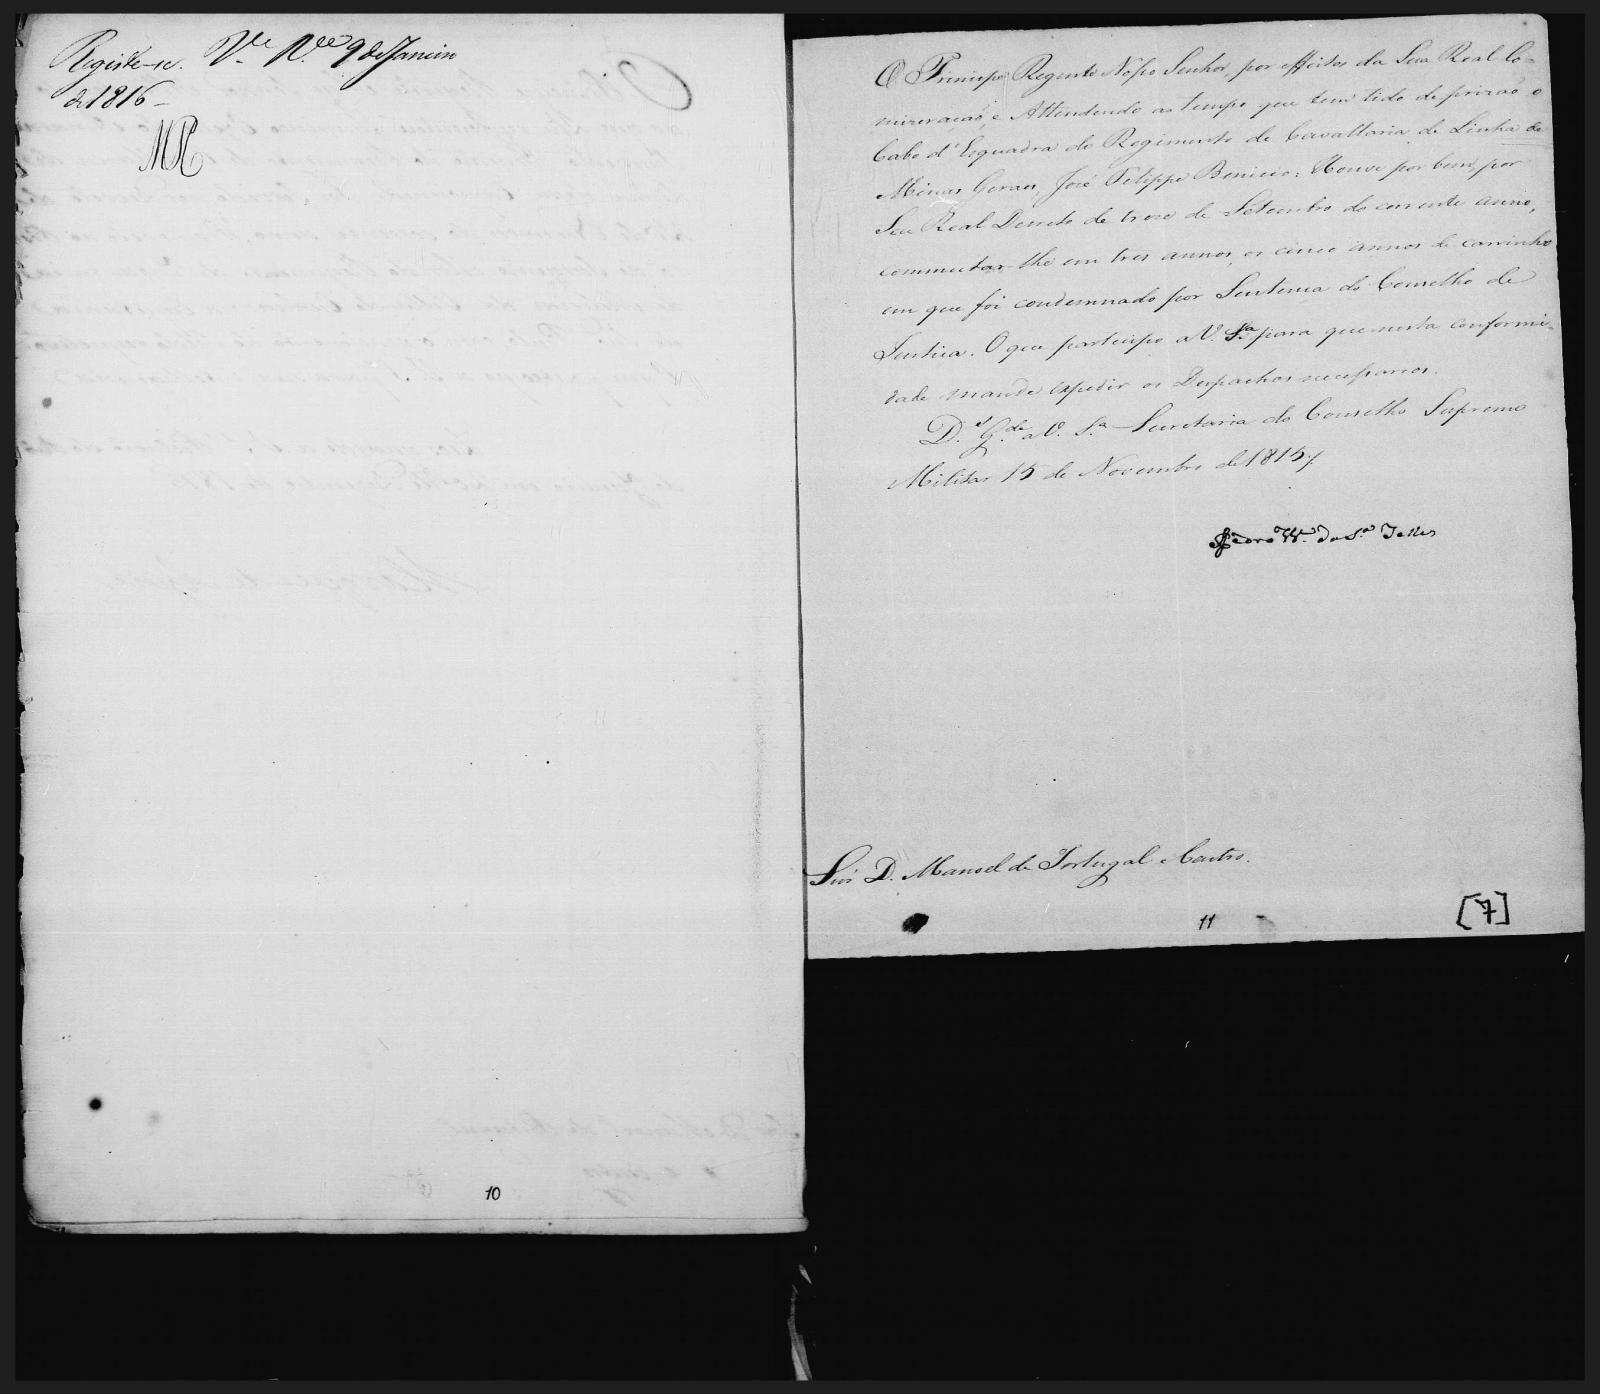 Registe-se. V.ª R.ca 9 de Janeiro
de 1816 –
10
O Principe Regente Nosso Senhor, por effeitos da Sua Real Co=
mizeração, e Attendendo ao tempo que tem tido de prizaõ o
Cabo d'Esquadra do Regimento de Cavallaria de Linha de
Minas Geraes, José Felippe Benicio: Houve por bem, por
Seu Real Decreto de treze de Setembro do corrente anno,
commutar-lhe em tres annos, os cinco annos de carrinho
em que foi condemnado por Sentença do Conselho de
Justiça. O que participo a V. S.ª para que nesta conformi=
dade mande expedir os Despachos necessarios.
D.s G.de a V. S.ª Secretaria do Conselho Supremo
Militar 15 de Novembro de 1815 /.
Pedro W. da S.ª Telles
Snr D. Manoel de Portugal e Castro.
11
[7]